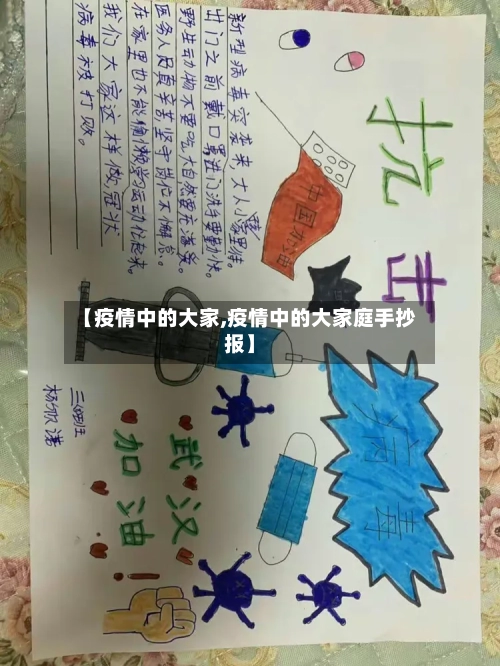 抗击
病毒
新型病毒突袭来，大人小孩家里待。
出门之前戴口罩，进门洗手要勤快。
野生动物不要吃，大自然要充满爱。
医务人员真辛苦，坚守岗位不懈怠。
在家里也不能偷懒，学习运动化起来。
我们大家这样做，冠状
病毒被打败。
中国加油
【疫情中的大家,疫情中的大家庭手抄
报】
武汉
加油！